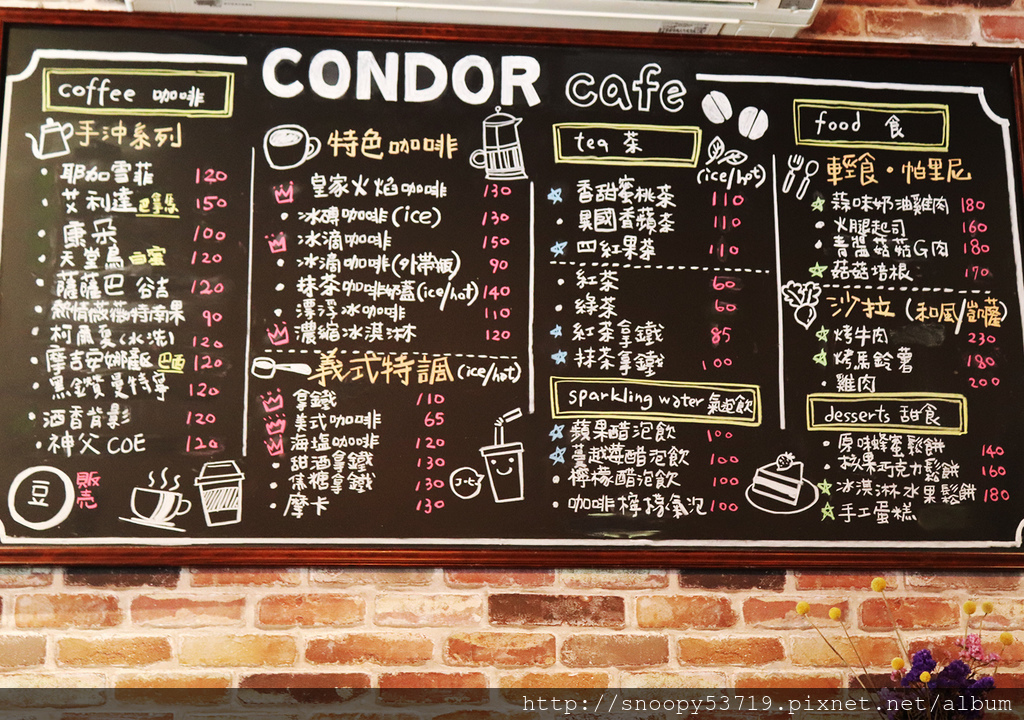 CONDOR cafe
coffee 咖啡
手沖系列
耶加雪菲 120
艾利達 巴拿馬 150
康朵 100
天堂鳥 曰蜜 120
薩薩巴 谷吉 120
熱情薇薇特南果 90
柯爾夏(水洗) 120
摩吉安娜 120
黑鑽曼特寧 120
酒香肖影 120
神父 COE 120
豆 販売
特色咖啡
皇家火焰咖啡 130
冰磚咖啡(ice) 130
冰滴咖啡 150
冰滴咖啡(外帶瓶) 90
抹茶咖啡奶蓋(ice/hot) 140
漂浮冰咖啡 110
濃縮冰淇淋 120
義式特調(ice/hot)
拿鐵 110
美式咖啡 65
海塩咖啡 120
甜酒拿鐵 130
焦糖拿鐵 130
摩卡 130
tea 茶
(ice/hot)
香甜蜜桃茶 110
異國香蘋茶 110
四紅果茶 110
紅茶 60
綠茶 60
紅茶拿鐵 85
抹茶拿鐵 100
sparkling water 氣泡飲
蘋果醋泡飲 100
蔓越莓醋泡飲 100
檸檬醋泡飲 100
咖啡檸檬氣泡 100
food 食
輕食·帕里尼
蒜味奶油雞肉 180
火腿起司 160
青醬菇菇G肉 180
菇菇培根 170
沙拉(和風/凱薩)
烤牛肉 230
烤馬鈴薯 180
雞肉 200
desserts 甜食
原味蜂蜜鬆餅 140
核果巧克力鬆餅 160
冰淇淋水果鬆餅 180
手工蛋糕
http://snoopy53719.pixnet.net/album